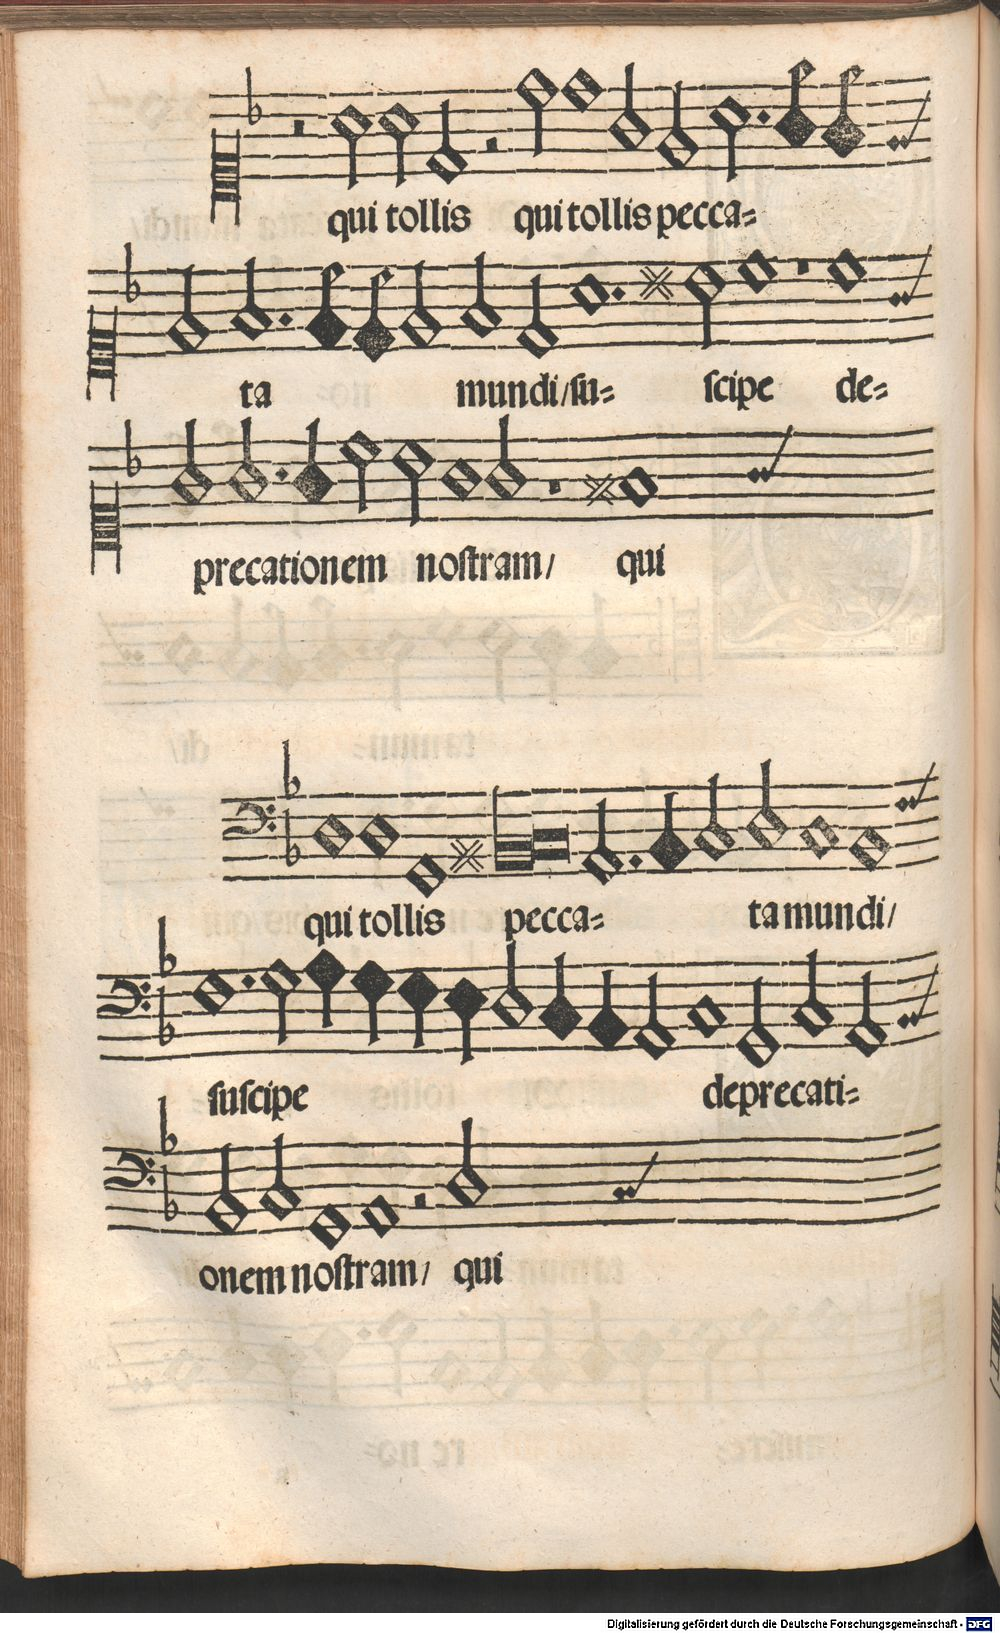 qui tollis qui tollis pecca⸗
ta mundi/su⸗ ſcipe de⸗
precationem noſtram/ qui
qui tollis pecca⸗ ta mundi/
ſuſcipe deprecati⸗
onem noſtram/ qui
Digitalisierung gefördert durch die Deutsche Forschungsgemeinschaft - DFG